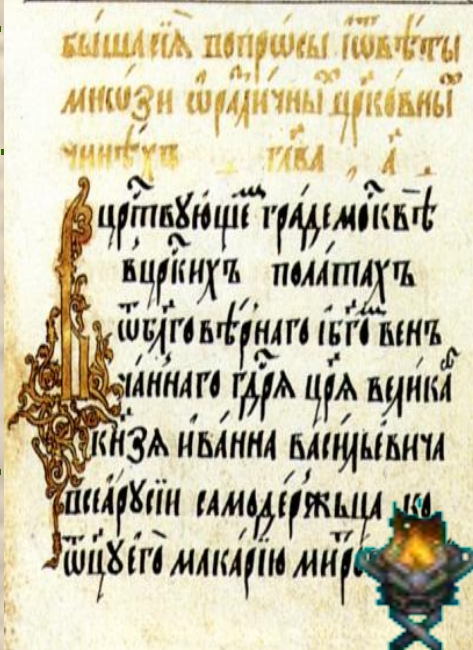 бы́ша сїѧ̀ вопрѡсы їѿвѣ́ты
мно́зи ѿрали́чны црⷦ҇о́вны
чинѣ́хъ гла́ва а҃
Вцр҇твꙋющеⷨ гра́де моⷭ҇квѣ
вцр҇кихъ пола́тахъ
ѿбл҃говѣ́рнаго їбг҃о́ вен
ча́ннаго гдⷭ҇рѧ црѧ̀ вели́каⷢ҇
кн҃зѧ ива́нна васи́льевича
всеа́рꙋсїи самоде́ржьца ко
ѿцꙋ̀его̀ мака́рїю